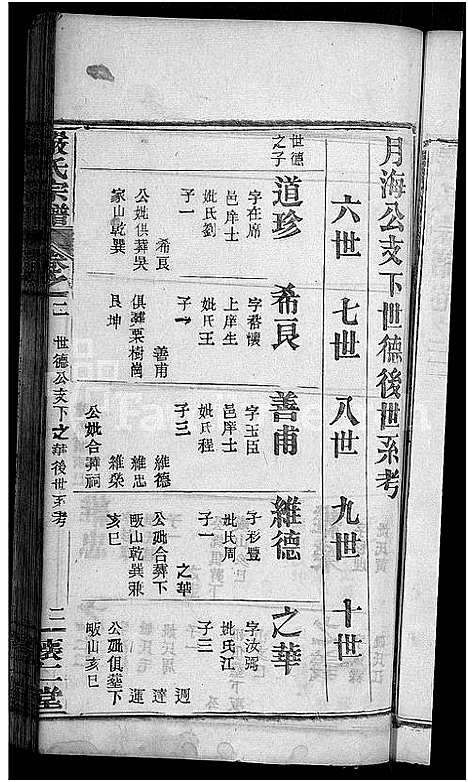 月海公支下世德後世系考
六世 七世 八世 九世 十世
世德之子
道珍
字在席
邑庠士
妣氏劉
子一
希良
公妣俱葬吳
家山乾巽
希良
字君懷
上庠生
妣氏王
子一
善甫
俱葬栗樹崗
艮坤
善甫
字王臣
邑庠士
妣氏程
子三
維德
維忠
維榮
公妣合葬祠
維德
字彩豐
妣氏周
子一
之華
公妣合葬下
畈山乾巽兼
亥巳
之華
字汝弼
妣氏江
子三
週
達
運
公妣俱塟下
畈山亥巳
嚴氏宗譜
卷之二
世德公支下之華後世系考
二
堂